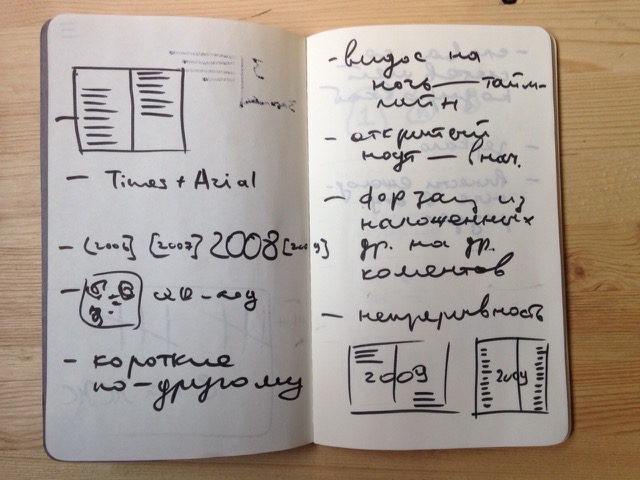 - Times + Arial
- [2006] [2007] 2008 [2009]
- QR-код
- короткие
по-другому
- видос на
ночь — тайм-
лайн
- открытый
ноут — внач.
- форзац из
наложенных
др. на др.
коментов
- непрерывность
2009
2009